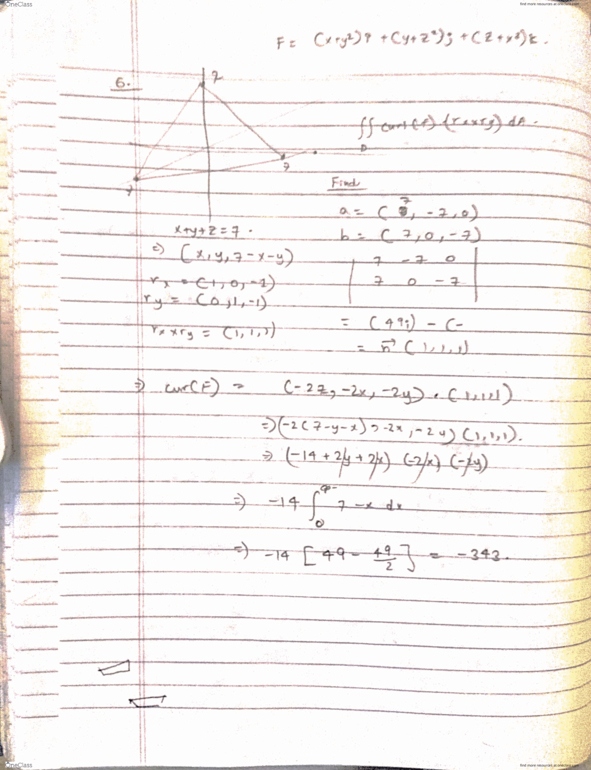 OneClass
find more resources at oneclass.com
F = (x+y²)i + (y+z²)j + (z+x²)k.
6.
z
7
7
∬ curl(F) (rxxry) dA.
D
Find
a = (7, -7, 0)
b = (7, 0, -7)
7 -7 0
7 0 -7
= (49i) - (-
= n→ (1,1,1)
x+y+z = 7.
⇒ (x, y, 7-x-y)
rx = (1, 0, -1)
ry = (0, 1, -1)
rx x ry = (1,1,1)
⇒ cur(F) = (-2z, -2x, -2y) . (1,1,1)
⇒ (-2(7-y-x), -2x, -2y) (1,1,1).
⇒ (-14 + 2y + 2x) (-2x) (-2y)
⇒ -14 ∫ 7-x dx
0
⇒ -14 [49 - 49/2] = -343.
OneClass
find more resources at oneclass.com